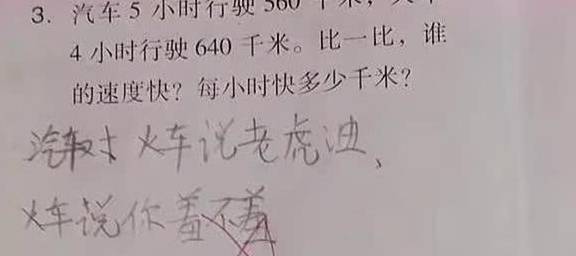 3. 汽车 5 小时行驶 560 千米，火车
4 小时行驶 640 千米。比一比，谁
的速度快？每小时快多少千米？
汽车对火车说老虎油、
火车说你羞不羞